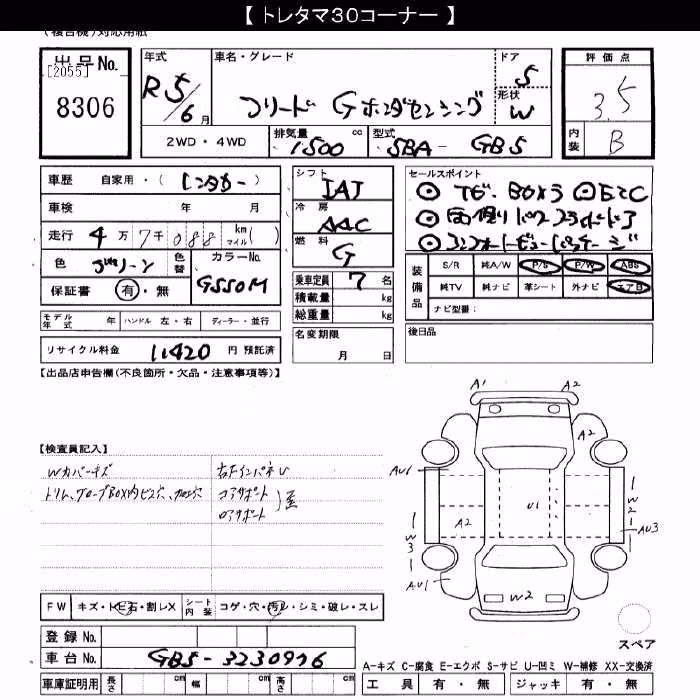 【 トレタマ30コーナー 】
(複合機)対応用紙
出品No.
[2055]
8306
年式
R 5/6 月
車名・グレード
フリード G ホンダセンシング
ドア
5
形状
W
2WD・4WD
排気量
1500 cc
型式
5BA- GB5
評価点
3.5
内装
B
車歴 自家用・(レンタカー)
車検 年 月
走行 4万7千088 km マイル( )
色 グリーン
色替
カラーNo.
G550M
保証書 有・無
シフト
IAT
冷房
AAC
燃料
G
乗車定員 7 名
積載量 kg
総重量 kg
セールスポイント
◎ ナビ. BOXカラ ◎ ETC
◎ 両側パワースライドドア
◎ コンフォートビューパッケージ
装備品
S/R 純A/W P/S P/W ABS
純TV 純ナビ 革シート 外ナビ エアB
ナビ型番:
モデル年式 年 ハンドル 左・右 ディーラー・並行
リサイクル料金 11,420 円 預託済
名変期限
月 日
後日品
【出品店申告欄(不良箇所・欠品・注意事項等)】
【検査員記入】
Wカバーキズ
トリム、グローブBOX内ビス穴、加工穴
右Fインパネ U
コアサポート
ロアサポート
A1 A2
A2
A2
AU1
U1
W2
AU3
W3
AU1
W2
FW キズ・トビ石・割レX
シート内装 コゲ・穴・汚レ・シミ・破レ・スレ
登録No.
車台No. GB5-3230976
車庫証明用 長さ cm 幅 cm 高さ cm
スペア
A-キズ C-腐食 E-エクボ S-サビ U-凹ミ W-補修 XX-交換済
工具 有・無 ジャッキ 有・無